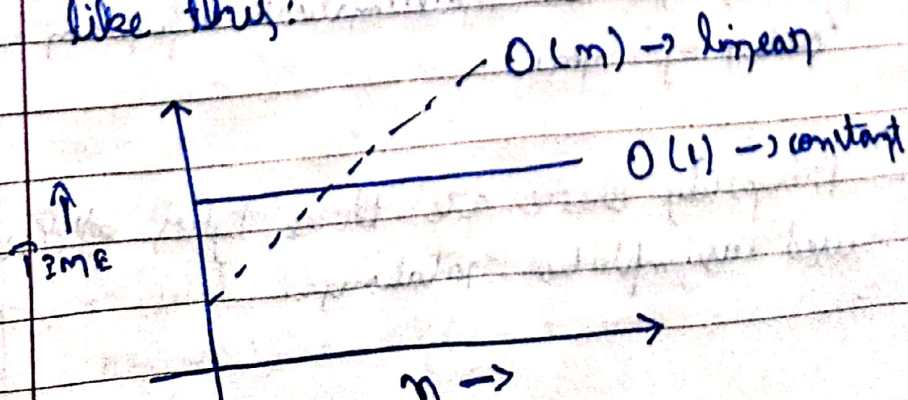 like this:
O(n) → linear
O(1) → constant
↑
TIME
n →